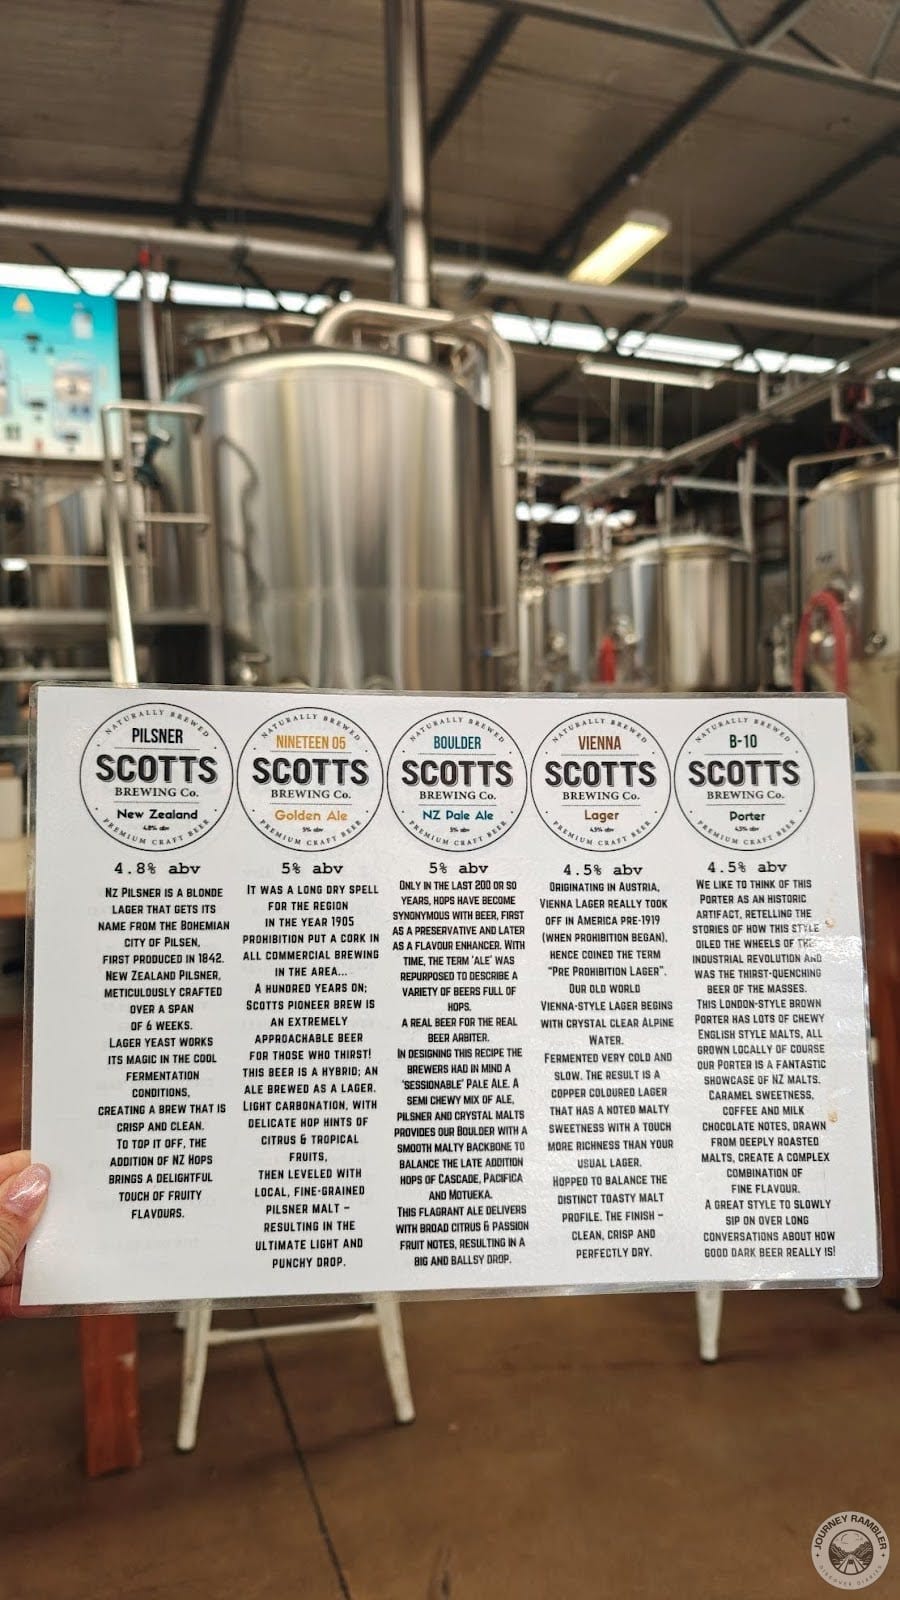 NATURALLY BREWED
PILSNER
SCOTTS
BREWING Co.
New Zealand
4.8% abv
PREMIUM CRAFT BEER
4.8% abv
NZ PILSNER IS A BLONDE
LAGER THAT GETS ITS
NAME FROM THE BOHEMIAN
CITY OF PILSEN,
FIRST PRODUCED IN 1842.
NEW ZEALAND PILSNER,
METICULOUSLY CRAFTED
OVER A SPAN
OF 6 WEEKS.
LAGER YEAST WORKS
ITS MAGIC IN THE COOL
FERMENTATION
CONDITIONS,
CREATING A BREW THAT IS
CRISP AND CLEAN.
TO TOP IT OFF, THE
ADDITION OF NZ HOPS
BRINGS A DELIGHTFUL
TOUCH OF FRUITY
FLAVOURS.
NATURALLY BREWED
NINETEEN 05
SCOTTS
BREWING Co.
Golden Ale
5% abv
PREMIUM CRAFT BEER
5% abv
IT WAS A LONG DRY SPELL
FOR THE REGION
IN THE YEAR 1905
PROHIBITION PUT A CORK IN
ALL COMMERCIAL BREWING
IN THE AREA...
A HUNDRED YEARS ON;
SCOTTS PIONEER BREW IS
AN EXTREMELY
APPROACHABLE BEER
FOR THOSE WHO THIRST!
THIS BEER IS A HYBRID; AN
ALE BREWED AS A LAGER.
LIGHT CARBONATION, WITH
DELICATE HOP HINTS OF
CITRUS & TROPICAL
FRUITS,
THEN LEVELED WITH
LOCAL, FINE-GRAINED
PILSNER MALT –
RESULTING IN THE
ULTIMATE LIGHT AND
PUNCHY DROP.
NATURALLY BREWED
BOULDER
SCOTTS
BREWING Co.
NZ Pale Ale
5% abv
PREMIUM CRAFT BEER
5% abv
ONLY IN THE LAST 200 OR SO
YEARS, HOPS HAVE BECOME
SYNONYMOUS WITH BEER, FIRST
AS A PRESERVATIVE AND LATER
AS A FLAVOUR ENHANCER. WITH
TIME, THE TERM 'ALE' WAS
REPURPOSED TO DESCRIBE A
VARIETY OF BEERS FULL OF
HOPS.
A REAL BEER FOR THE REAL
BEER ARBITER.
IN DESIGNING THIS RECIPE THE
BREWERS HAD IN MIND A
'SESSIONABLE' PALE ALE. A
SEMI CHEWY MIX OF ALE,
PILSNER AND CRYSTAL MALTS
PROVIDES OUR BOULDER WITH A
SMOOTH MALTY BACKBONE TO
BALANCE THE LATE ADDITION
HOPS OF CASCADE, PACIFICA
AND MOTUEKA.
THIS FLAGRANT ALE DELIVERS
WITH BROAD CITRUS & PASSION
FRUIT NOTES, RESULTING IN A
BIG AND BALLSY DROP.
NATURALLY BREWED
VIENNA
SCOTTS
BREWING Co.
Lager
4.5% abv
PREMIUM CRAFT BEER
4.5% abv
ORIGINATING IN AUSTRIA,
VIENNA LAGER REALLY TOOK
OFF IN AMERICA PRE-1919
(WHEN PROHIBITION BEGAN),
HENCE COINED THE TERM
"PRE PROHIBITION LAGER".
OUR OLD WORLD
VIENNA-STYLE LAGER BEGINS
WITH CRYSTAL CLEAR ALPINE
WATER.
FERMENTED VERY COLD AND
SLOW. THE RESULT IS A
COPPER COLOURED LAGER
THAT HAS A NOTED MALTY
SWEETNESS WITH A TOUCH
MORE RICHNESS THAN YOUR
USUAL LAGER.
HOPPED TO BALANCE THE
DISTINCT TOASTY MALT
PROFILE. THE FINISH –
CLEAN, CRISP AND
PERFECTLY DRY.
NATURALLY BREWED
B-10
SCOTTS
BREWING Co.
Porter
4.5% abv
PREMIUM CRAFT BEER
4.5% abv
WE LIKE TO THINK OF THIS
PORTER AS AN HISTORIC
ARTIFACT, RETELLING THE
STORIES OF HOW THIS STYLE
OILED THE WHEELS OF THE
INDUSTRIAL REVOLUTION AND
WAS THE THIRST-QUENCHING
BEER OF THE MASSES.
THIS LONDON-STYLE BROWN
PORTER HAS LOTS OF CHEWY
ENGLISH STYLE MALTS, ALL
GROWN LOCALLY OF COURSE
OUR PORTER IS A FANTASTIC
SHOWCASE OF NZ MALTS.
CARAMEL SWEETNESS,
COFFEE AND MILK
CHOCOLATE NOTES, DRAWN
FROM DEEPLY ROASTED
MALTS, CREATE A COMPLEX
COMBINATION OF
FINE FLAVOUR.
A GREAT STYLE TO SLOWLY
SIP ON OVER LONG
CONVERSATIONS ABOUT HOW
GOOD DARK BEER REALLY IS!
JOURNEY RAMBLER
DISCOVER DIARIES